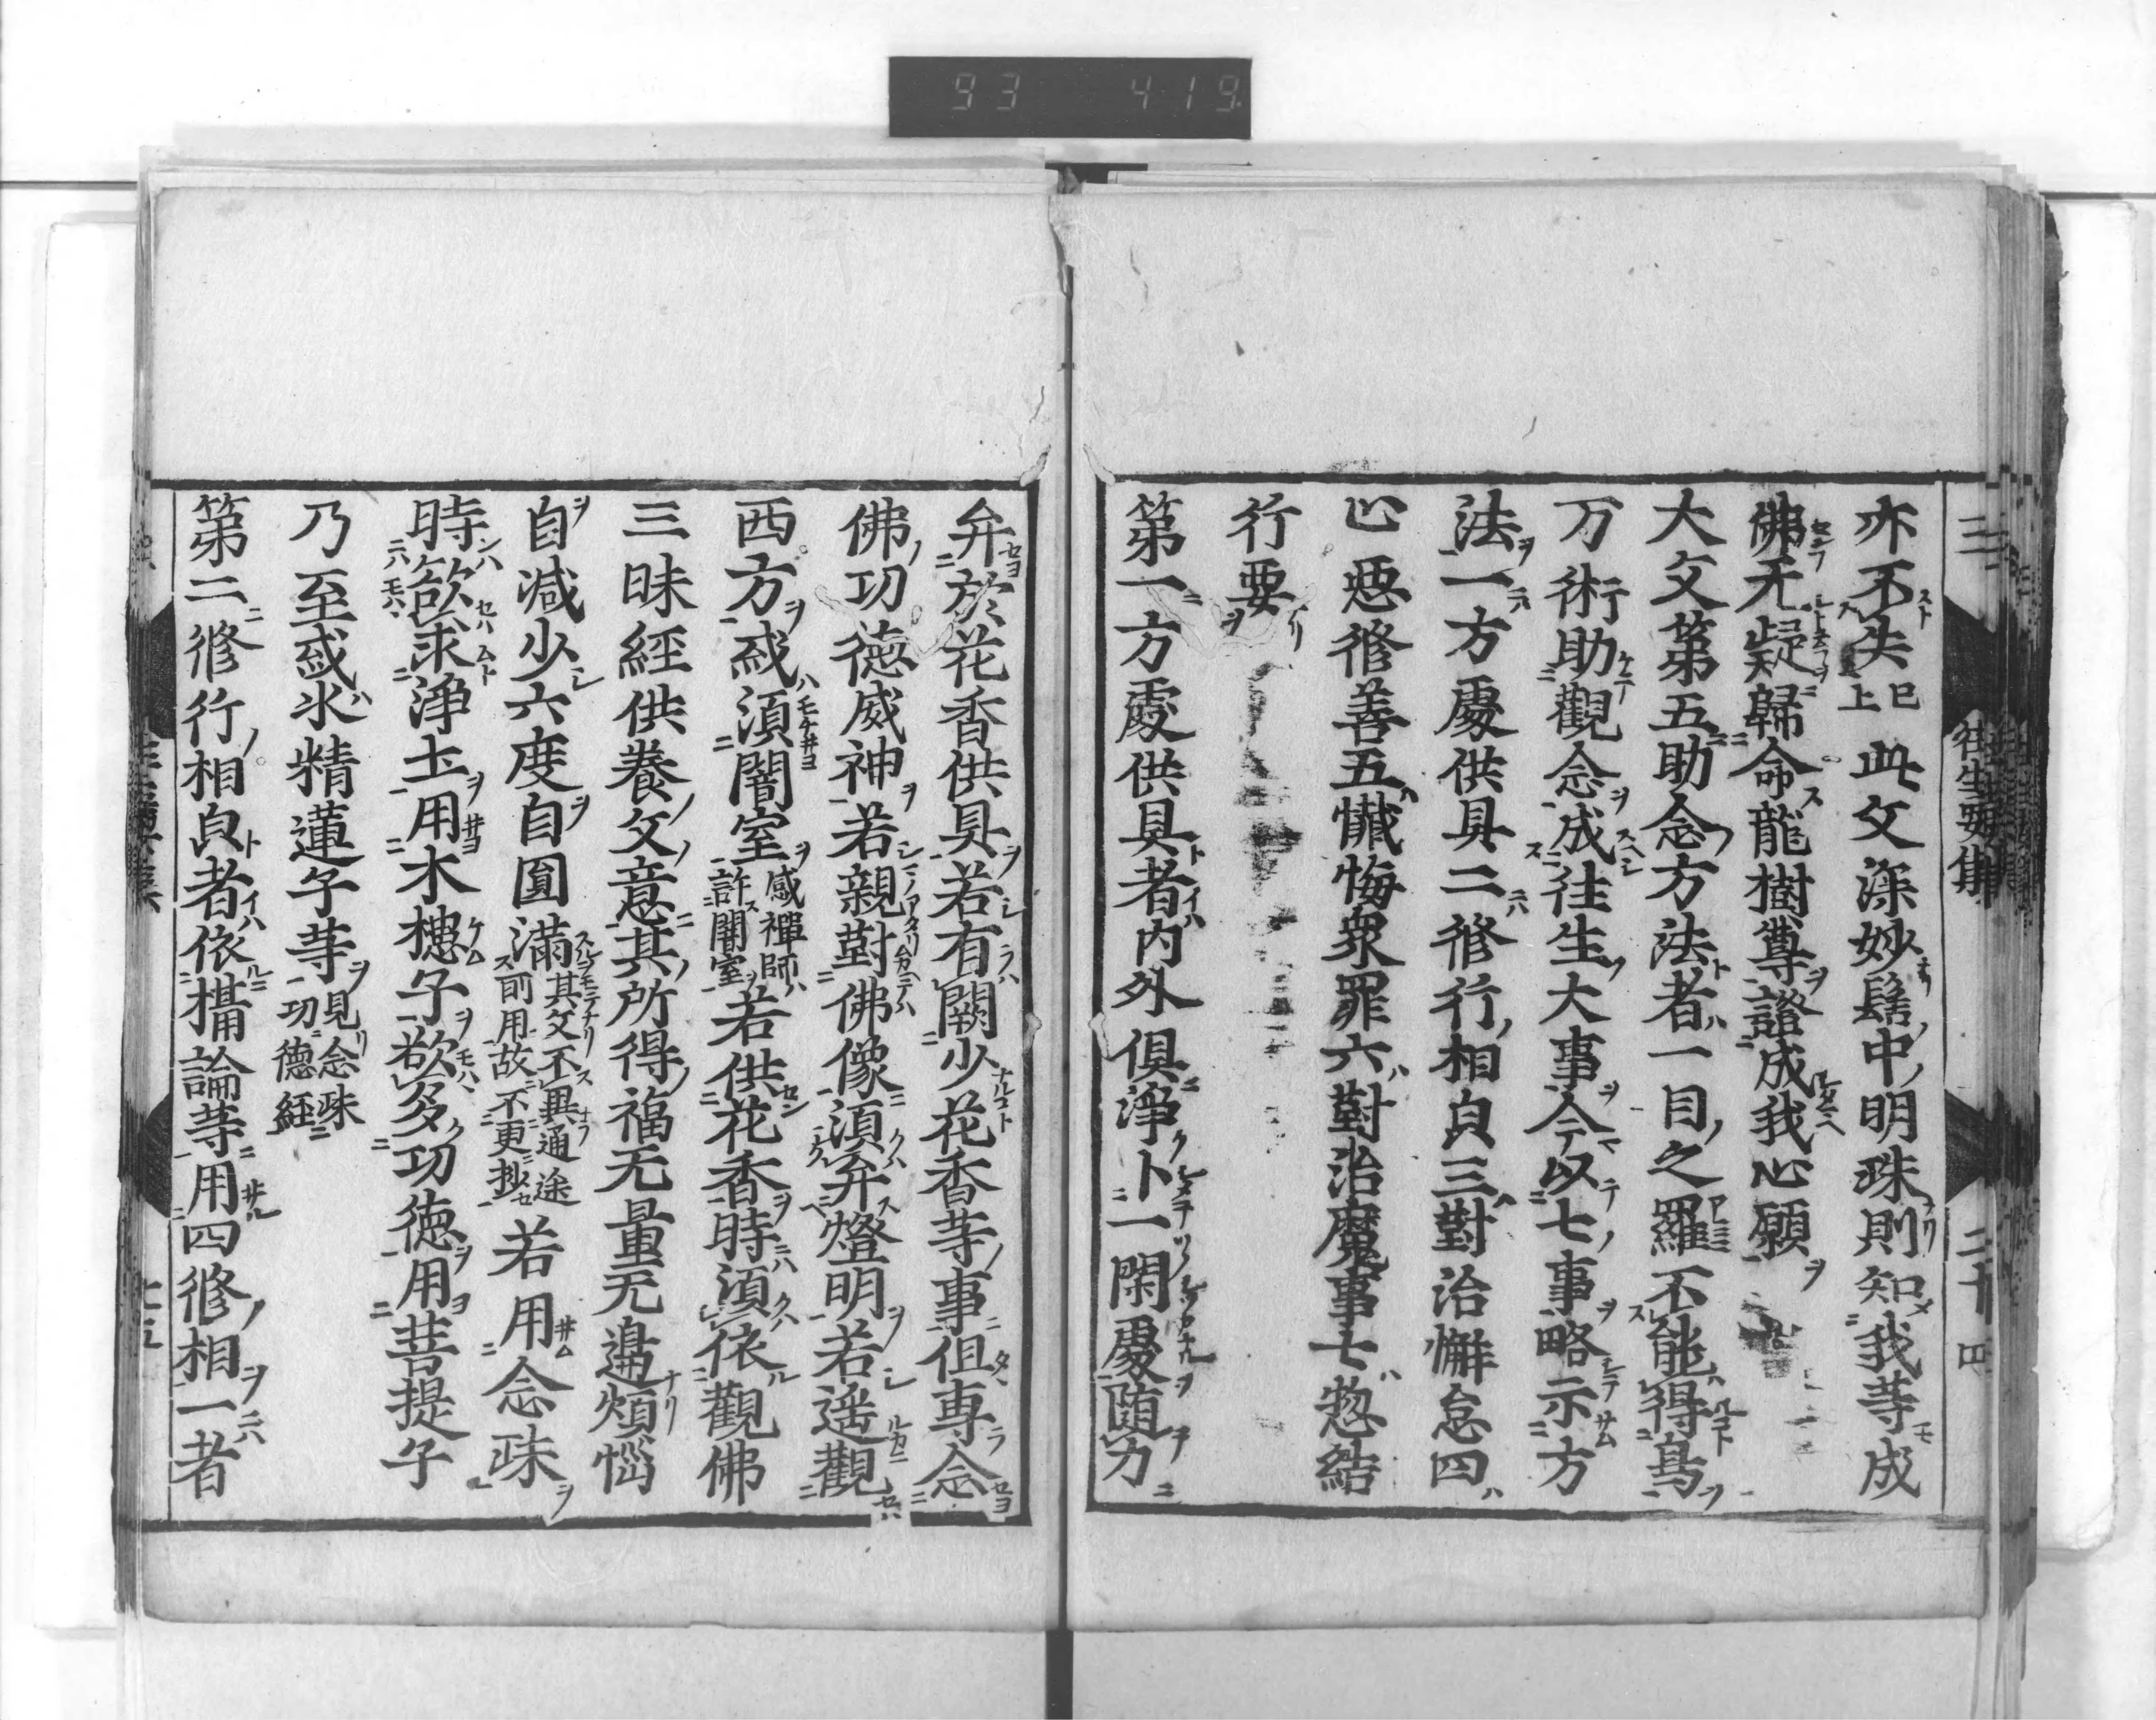 93 419
三
往生要集
二十四
亦不失已上此文深妙髻中明珠則知我等成
佛无疑歸命龍樹尊證成我心願
大文第五助念方法者一目之羅不能得鳥
万術助觀念成往生大事今以七事略示方
法一方處供具二修行相貌三對治懈怠四
心惡修善五懺悔衆罪六對治魔事七惣結
行要
第一方處供具者內外俱淨卜一閑處隨力
弁於花香供具若有闕少花香等事但專念
佛功德威神若親對佛像須弁燈明若遥觀
西方或須闇室感禪師許闇室若供花香時須依觀佛
三昧經供養文意其所得福无量无邊煩惱
自減少六度自圓滿其文不異通途前用故不更抄若用念珠
時欲求淨土用木槵子欲多功德用菩提子
乃至或水精蓮子等見念珠功德經
第二修行相貌者依攝論等用四修相一者